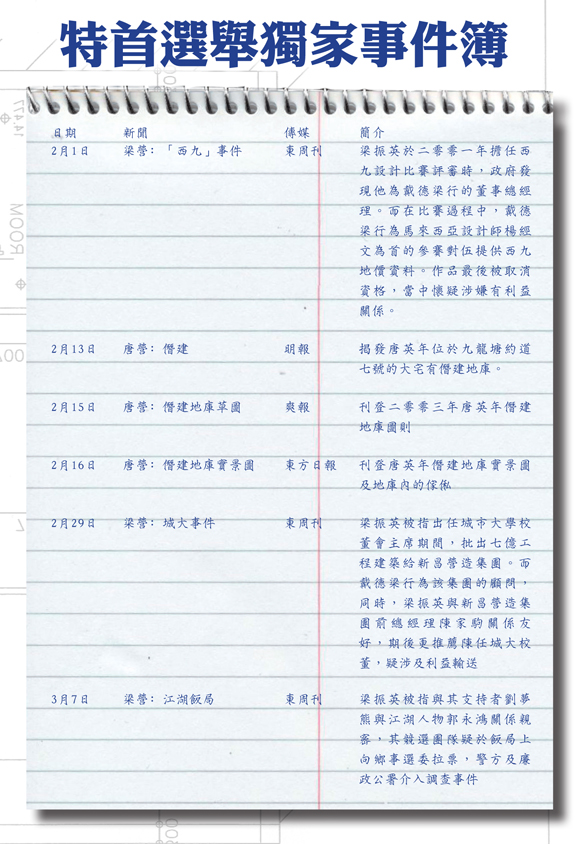 特首選舉獨家事件簿
日期 新聞 傳媒 簡介
2月1日 梁營：「西九」事件 東周刊 梁振英於二零零一年擔任西
九設計比賽評審時，政府發
現他為戴德梁行的董事總經
理。而在比賽過程中，戴德
梁行為馬來西亞設計師楊經
文為首的參賽對伍提供西九
地價資料。作品最後被取消
資格，當中懷疑涉嫌有利益
關係。
2月13日 唐營：僭建 明報 揭發唐英年位於九龍塘約道
七號的大宅有僭建地庫。
2月15日 唐營：僭建地庫草圖 爽報 刊登二零零三年唐英年僭建
地庫圖則
2月16日 唐營：僭建地庫實景圖 東方日報 刊登唐英年僭建地庫實景圖
及地庫內的傢俬
2月29日 梁營：城大事件 東周刊 梁振英被指出任城市大學校
董會主席期間，批出七億工
程建築給新昌營造集團。而
戴德梁行為該集團的顧問，
同時，梁振英與新昌營造集
團前總經理陳家駒關係友
好，期後更推薦陳任城大校
董，疑涉及利益輸送
3月7日 梁營：江湖飯局 東周刊 梁振英被指與其支持者劉夢
熊與江湖人物郭永鴻關係親
密，其競選團隊疑於飯局上
向鄉事選委拉票，警方及廉
政公署介入調查事件
14,477
ROOM